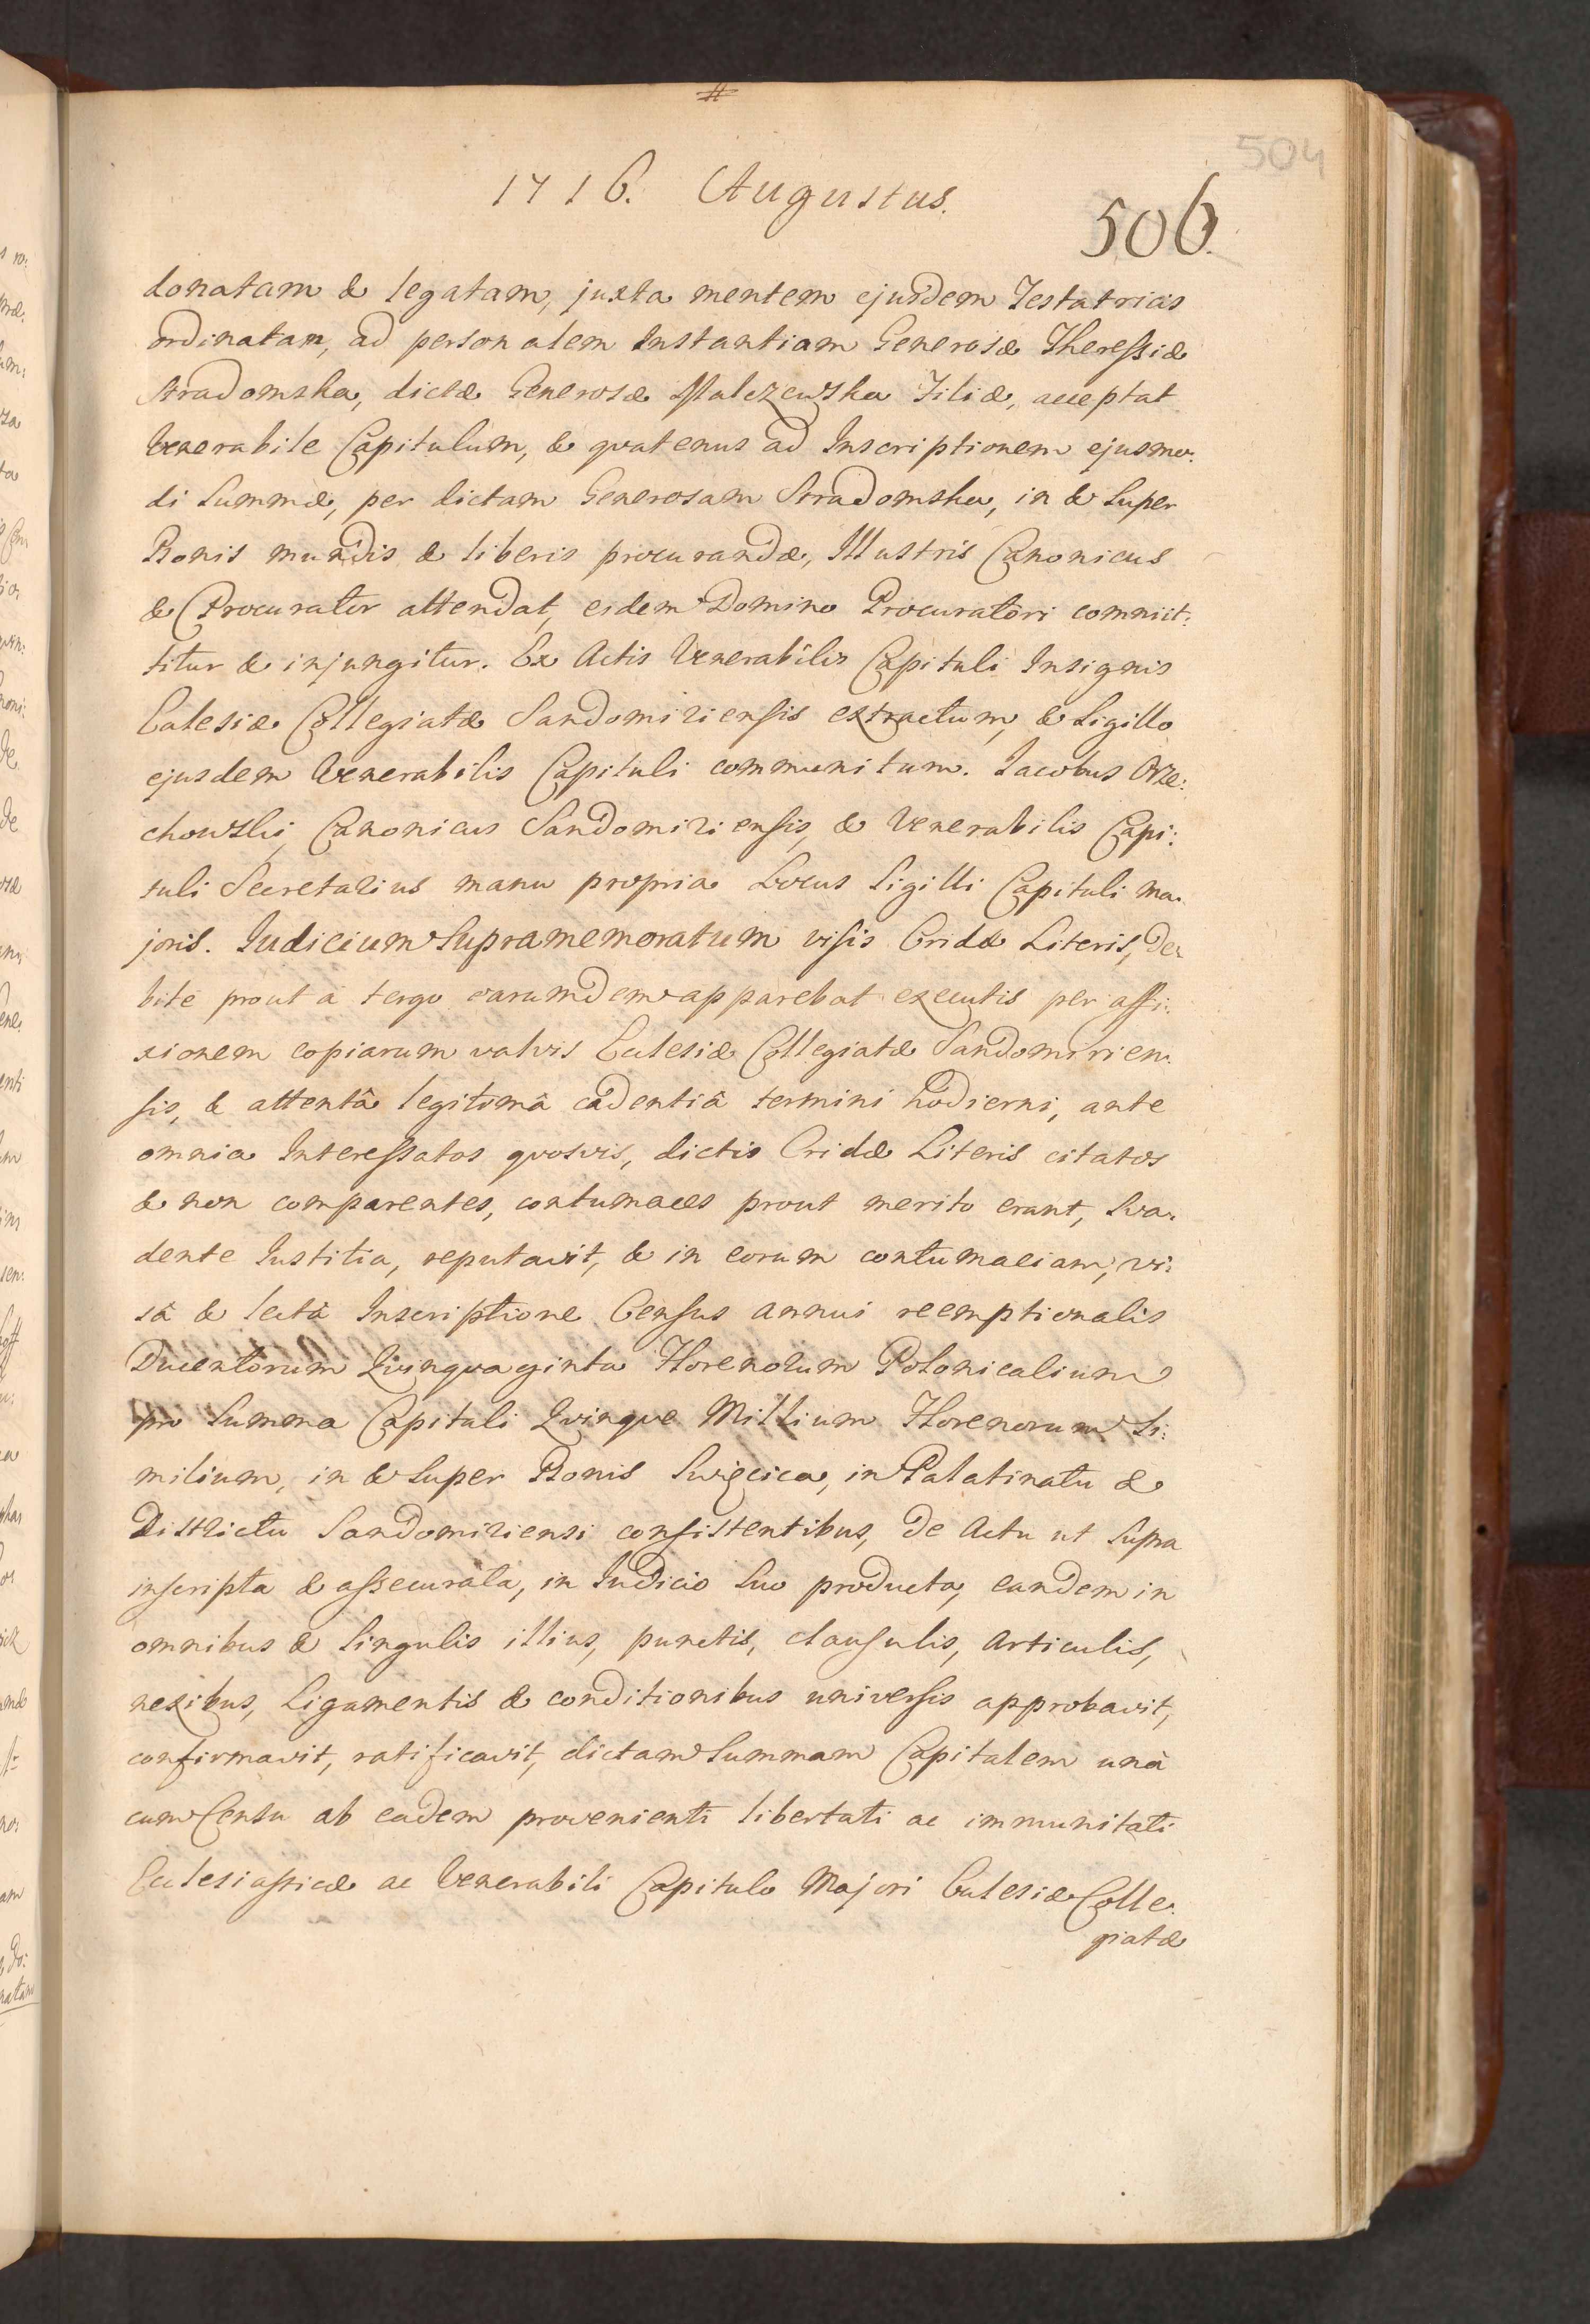 #
504
1716. Augustus.
506.
donatam & legatam, juxta mentem ejusdem Testatricis
ordinatam, ad personalem Instantiam Generosæ Theressiæ
Stradomska, dictæ Generosæ Malczewska Filiæ, acceptat
Venerabile Capitulum, & qvatenus ad Inscriptionem ejusmo-
di Summæ, per dictam Generosam Stradomska, in & Super
Bonis mundis & liberis procurandæ, Illustris Canonicus
& Procurator attendat, eidem Domino Procuratori commit:
titur & injungitur. Ex Actis Venerabilis Capituli Insignis
Eclesiæ Collegiatæ Sandomiriensis extractum, & Sigillo
ejusdem Venerabilis Capituli communitum. Iacobus Orze:
chowski, Canonicus Sandomiriensis, & Venerabilis Capi:
tuli Secretarius manu propria Locus Sigilli Capituli Ma-
joris. Iudicium Supramemoratum visis Cridæ Literis, De-
bite prout à tergo earumdem apparebat executis per affi:
xionem copiarum valvis Eclesiæ Collegiatæ Sandomirien-
sis, & attentâ legitimâ cadentiâ termini hodierni, ante
omnia Interessatos qvosvis, dictis Cridæ Literis citatos
& non comparentes, contumaces prout merito erant, Sva-
dente Iustitia, reputavit, & in eorum contumaciam, vi:
sâ & lectâ Inscriptione Census annui reemptionalis
Ducentorum Qvinqvaginta Florenorum Polonicalium
pro Summa Capitali Qvinqve Millium Florenorum Si:
milium, in & Super Bonis Swięcica, in Palatinatu &
Districtu Sandomiriensi consistentibus, De Actu ut Supra
inscripta & assecurata, in Iudicio Suo producta, eandem in
omnibus & Singulis illius, punctis, clausulis, Articulis,
nexibus, Ligamentis & conditionibus universis approbavit,
confirmavit, ratificavit, dictam Summam Capitalem unà
cum Censu ab eadem provenienti libertati ac immunitati
Eclesiasticæ ac Venerabili Capitulo Majori Eclesiæ Colle-
giatæ